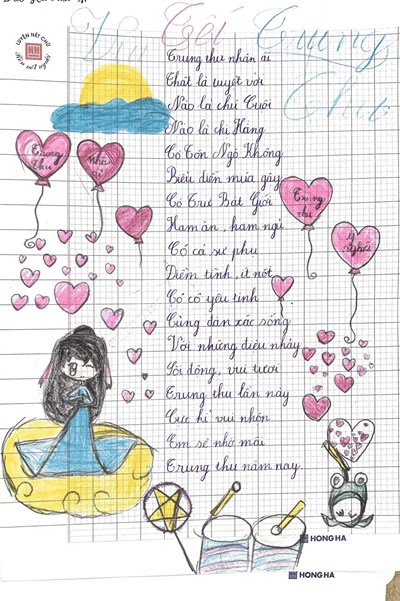 LUYỆN NÉT CHỮ
RÈN NẾT NGƯỜI
Tết Trung
Thu
Trung thu nhân ái
Thật là tuyệt vời
Nào là chú Cuội
Nào là chị Hằng
Có Tôn Ngộ Không
Biểu diễn múa gậy
Có Trư Bát Giới
Ham ăn, ham ngủ
Có cả sư phụ
Điềm tĩnh, ít nói
Có cô yêu tinh
Cùng dàn xác sống
Với những điệu nhảy
Sôi động, vui tươi
Trung thu lần này
Cực kì vui nhộn
Em sẽ nhớ mãi
Trung thu năm nay.
Trung
thu
Nhân
ái
Trung
thu
Ý
nghĩa
HONG HA
HONG HA